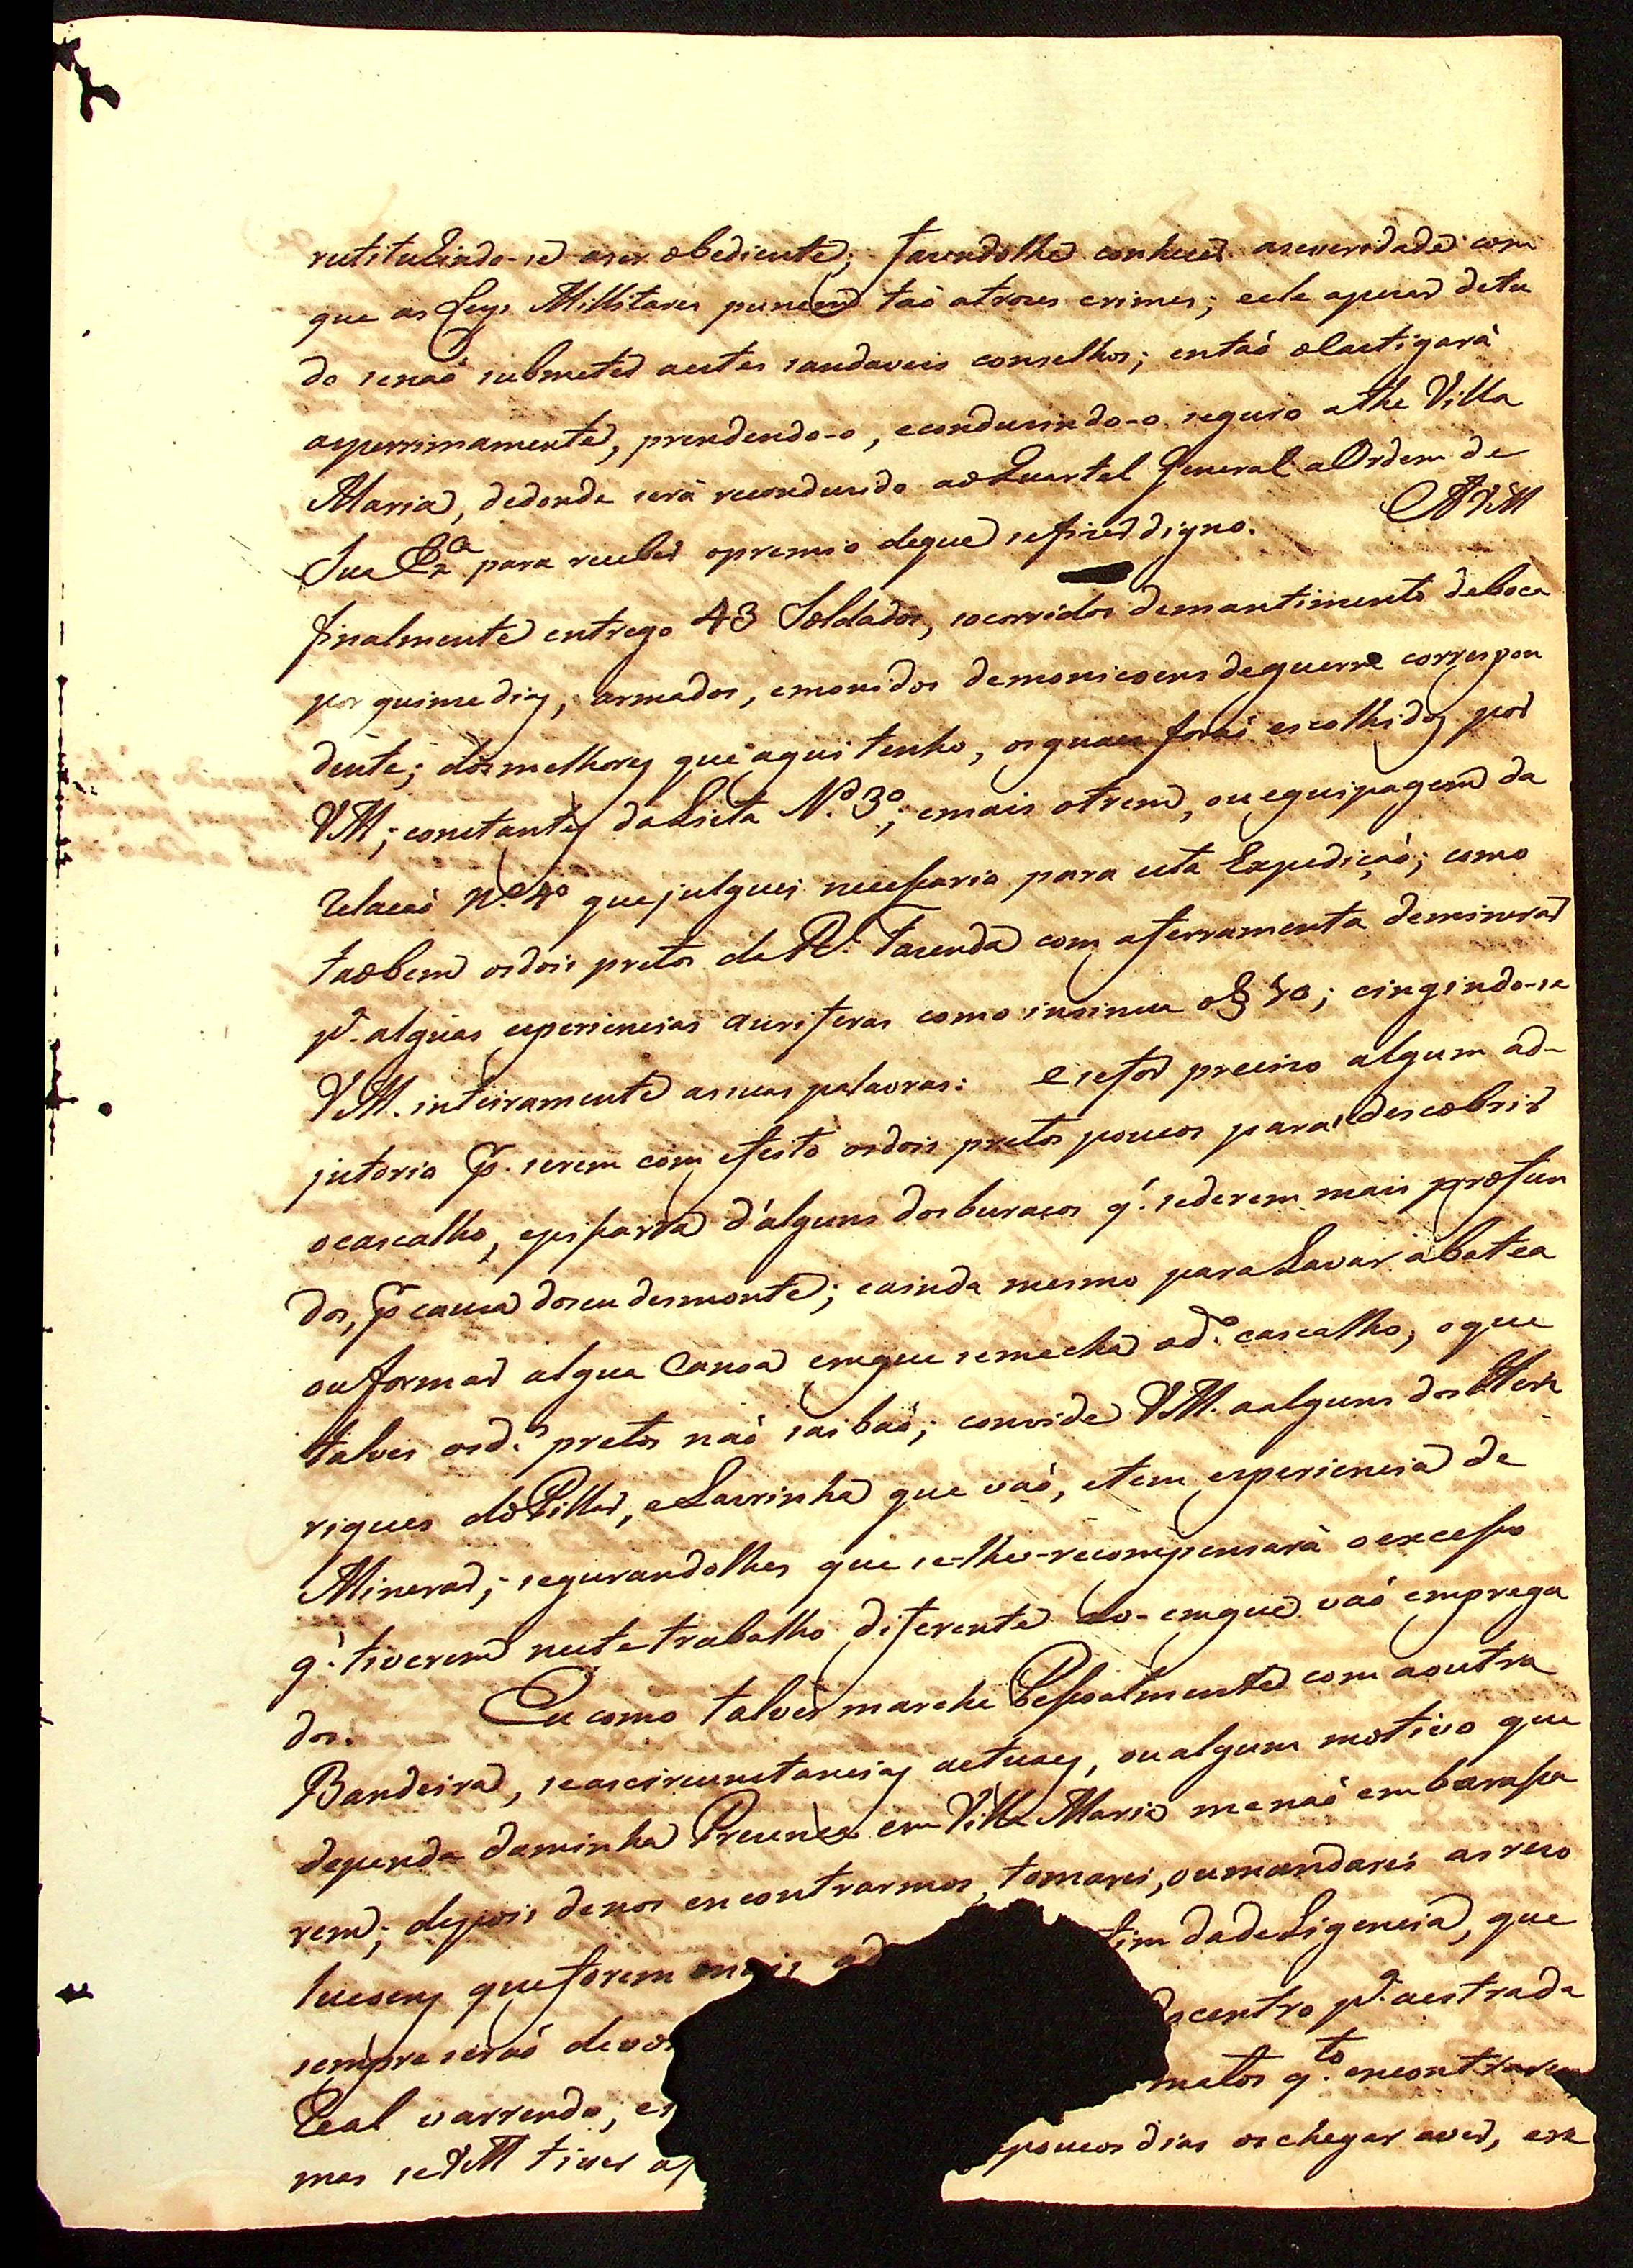 restituindo-se aser obediente; fazendolhe conhecer aseveridade com
que as Leys Millitares punem taõ atrozes crimes; eele apezar detu
do senaõ submeter aestes saudaveis conselhos; entaõ ocastigarà
asperrimamente, prendendo-o, econduzindo-o seguro athe Villa
Maria, dedonde serà reconduzido aoQuartel General aOrdem de
Sua Exa para receber opremio deque sefizer digno. AVM
finalmente entrego 43 Soldados, socorridos demantimento deboca
por quinze dias, armados, emonidos demonicoens deguerra correspon
dente; dos melhores que aqui tenho, osquaes foraõ escolhidos por
VM; constantes daLista N.º 3º; emais otrem, ou equipagem da
relacaõ N.º 4º que julguei necessario para esta Expediçaõ; como
taobem osdois pretos da Rl. Fazenda com aferramenta deminerar
pª. algũas experiencias auriferas como insinua o§ 30; cingindo-se
VM. inteiramente assuas palavras: esefor preciso algum ad-
jutorio p. serem com efeito osdois pretos poucos para descobrir
ocascalho, episarra d'alguns dosburacos q'. sederem mais profun
dos, p causa doseu desmonte; eainda mesmo paraLavar abatea
ouformar algua Canoa emque semecha od.º cascalho, oque
talves osd.os pretos naõ saibaõ; convide VM. aalguns dos Hen
riques doPillar, eLavrinha que vaõ, etem experiencia de
Minerar; segurandolhes que se-lhes-recompensarà oexcesso
q'. tiverem nestetrabalho diferente do-emque vaõ emprega
dos. Eu como talvez marche Pessoalmente com aoutra
Bandeira, seascircunstancias actuaes, oualgum motivo que
dependa daminha Presença em Villa Maria menaõ embarassa
rem; depois denos encontrarmos, tomarei, oumandarei asreso
lucoens queforem mais ad fim dadeLigencia, que
sempre seraõ devo centro pª. aestrada
Real varrendo, e matos q.to encontrarem
mas seVM tiver a poucos dias oschegar aver, ese